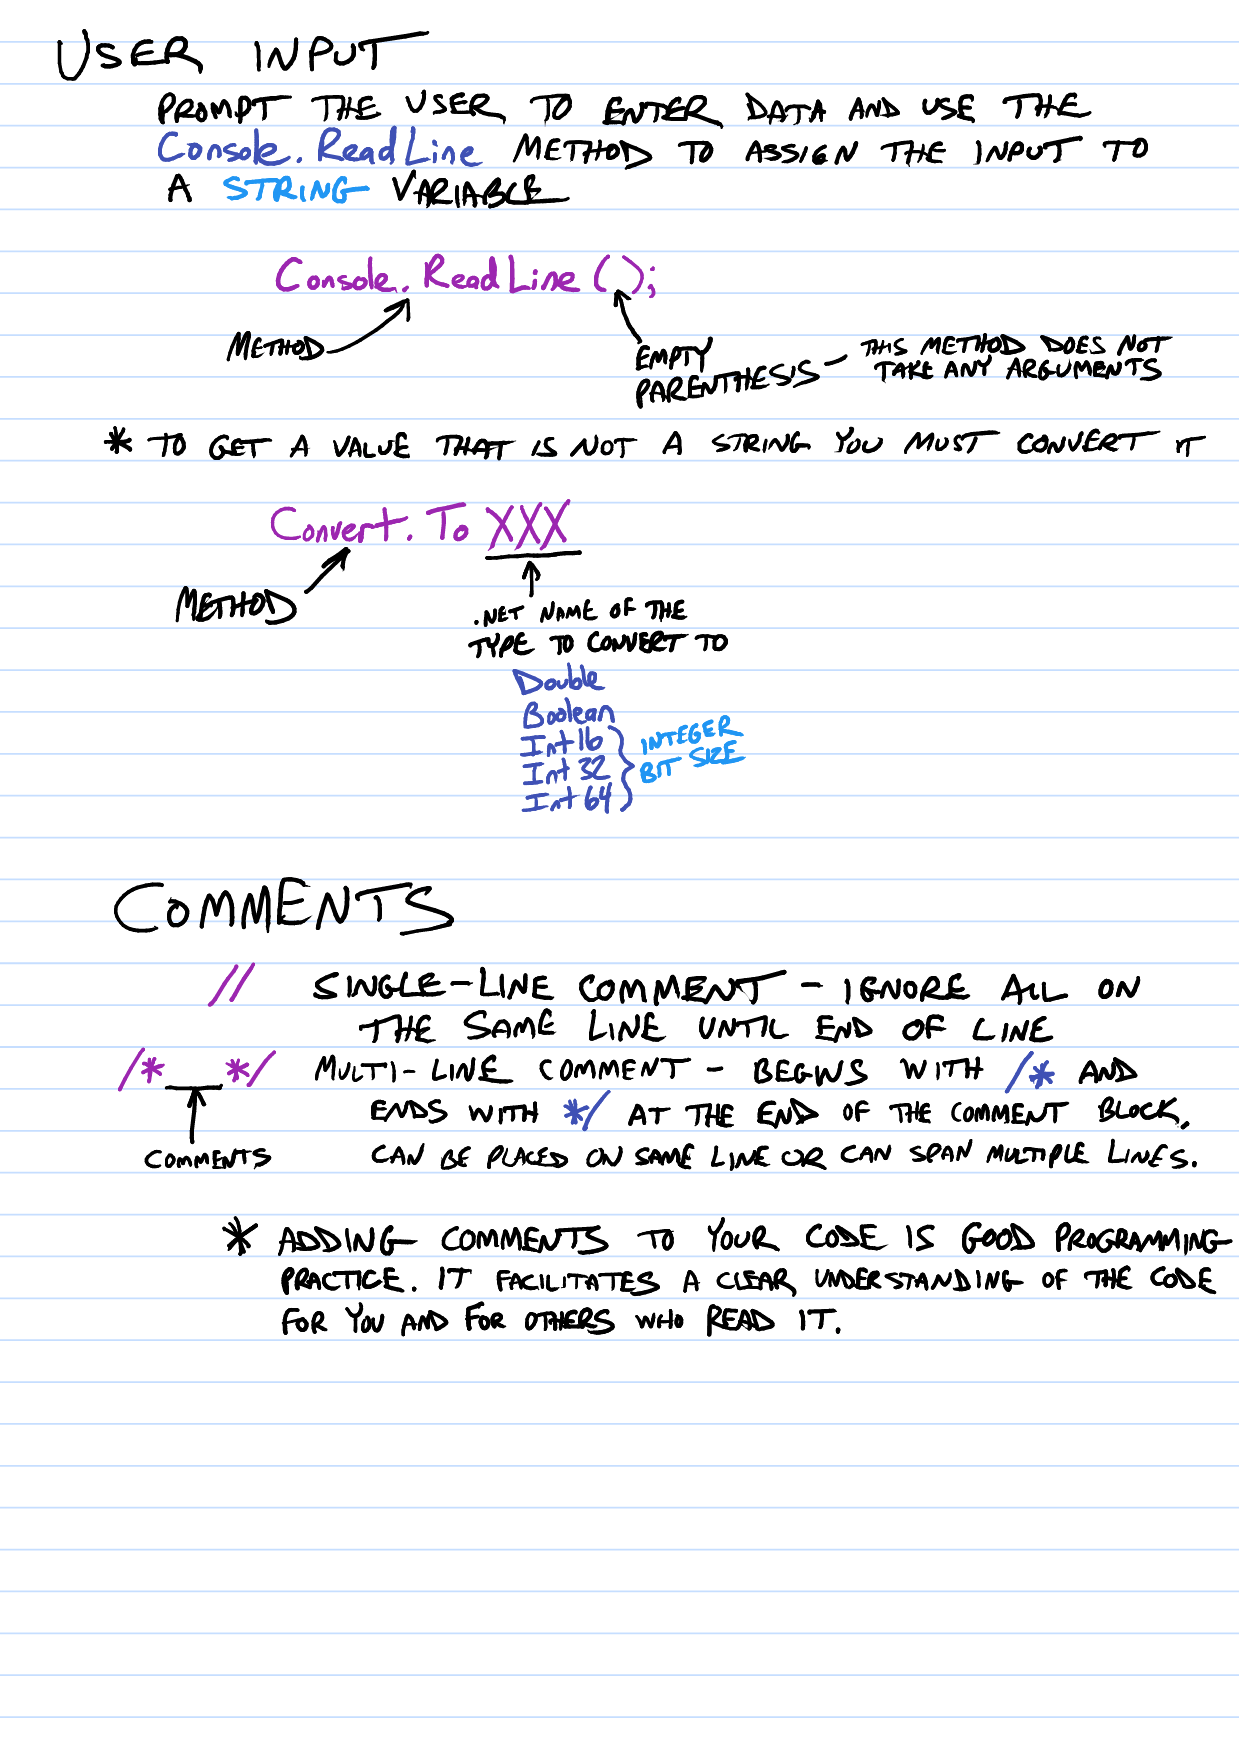 USER INPUT
PROMPT THE USER TO ENTER DATA AND USE THE
Console.ReadLine METHOD TO ASSIGN THE INPUT TO
A STRING VARIABLE
Console.ReadLine();
METHOD
EMPTY
PARENTHESIS
THIS METHOD DOES NOT
TAKE ANY ARGUMENTS
* TO GET A VALUE THAT IS NOT A STRING YOU MUST CONVERT IT
Convert.To XXX
METHOD
.NET NAME OF THE
TYPE TO CONVERT TO
Double
Boolean
Int16
Int32
Int64
INTEGER
BIT SIZE
COMMENTS
// SINGLE-LINE COMMENT - IGNORE ALL ON
THE SAME LINE UNTIL END OF LINE
/* */ MULTI-LINE COMMENT - BEGINS WITH /* AND
ENDS WITH */ AT THE END OF THE COMMENT BLOCK,
COMMENTS
CAN BE PLACED ON SAME LINE OR CAN SPAN MULTIPLE LINES.
* ADDING COMMENTS TO YOUR CODE IS GOOD PROGRAMMING
PRACTICE. IT FACILITATES A CLEAR UNDERSTANDING OF THE CODE
FOR YOU AND FOR OTHERS WHO READ IT.